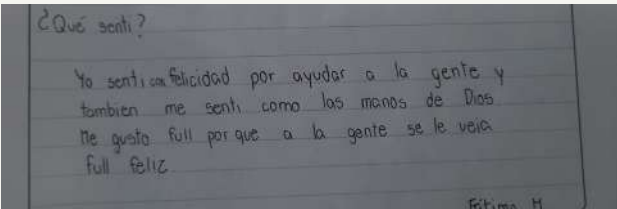 ¿Qué senti?
Yo senti con felicidad por ayudar a la gente y
tambien me senti como las manos de Dios
Me gusto full por que a la gente se le veia
full feliz
Fátima M